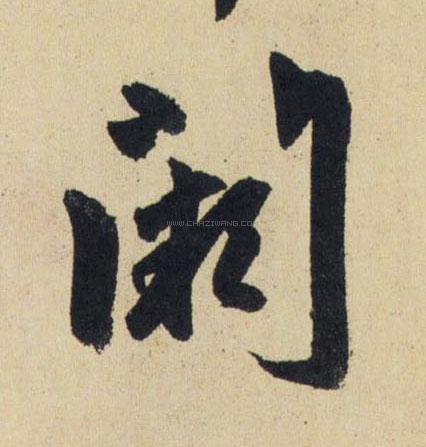 闕
WWW.CHAZIWANG.COM